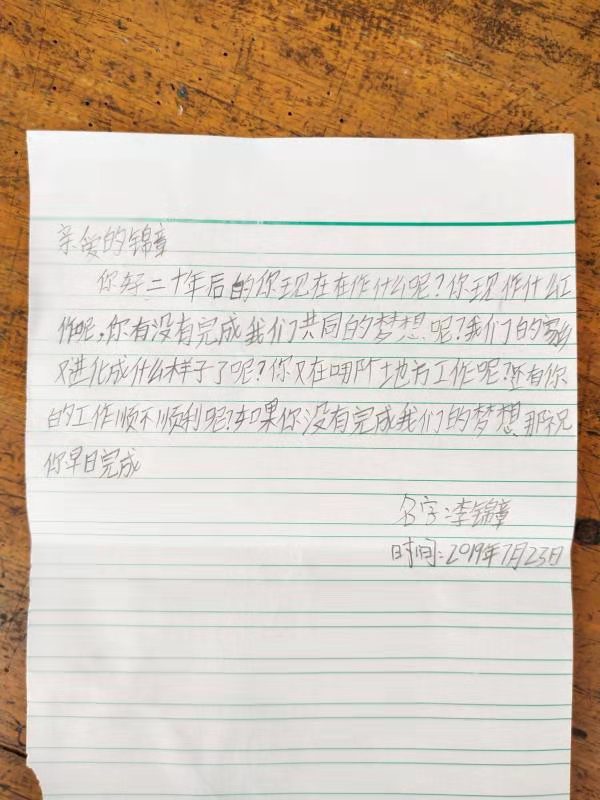 亲爱的锦章
你好二十年后的你现在在作什么呢?你现作什么工
作呢,你有没有完成我们共同的梦想呢?我们的家乡
又进化成什么样子了呢?你又在哪个地方工作呢?还有你
的工作顺不顺利呢?如果你没有完成我们的梦想那祝
你早日完成
名字:李锦章
时间:2019年7月23日